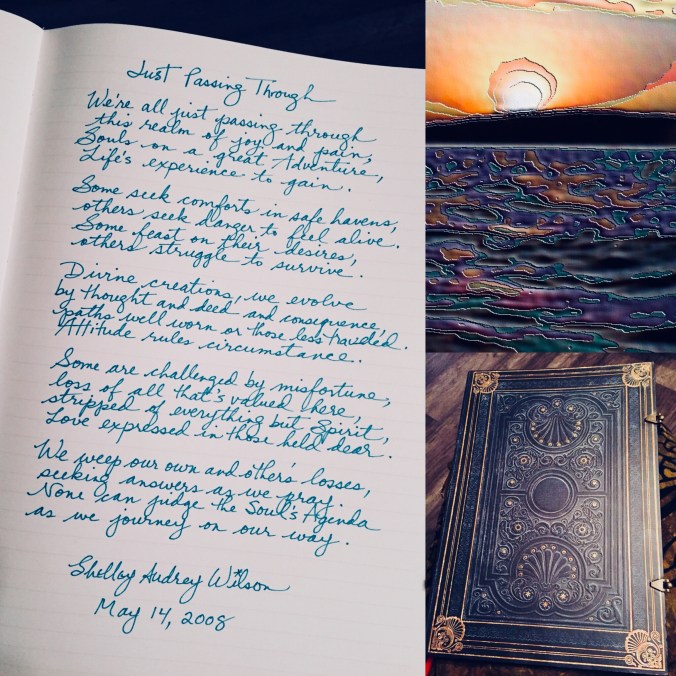 Just Passing Through
We're all just passing through
this realm of joy and pain,
Souls on a great Adventure,
Life's experience to gain.
Some seek comforts in safe havens,
others seek danger to feel alive.
Some feast on their desires,
others struggle to survive.
Divine creations, we evolve
by thought and deed and consequence,
paths well worn or those less traveled.
Attitude rules circumstance.
Some are challenged by misfortune,
loss of all that's valued here,
stripped of everything but Spirit,
Love expressed in those held dear.
We weep our own and others' losses,
seeking answers as we pray.
None can judge the Soul's Agenda
as we journey on our way.
Shelley Audrey Wilson
May 14, 2008